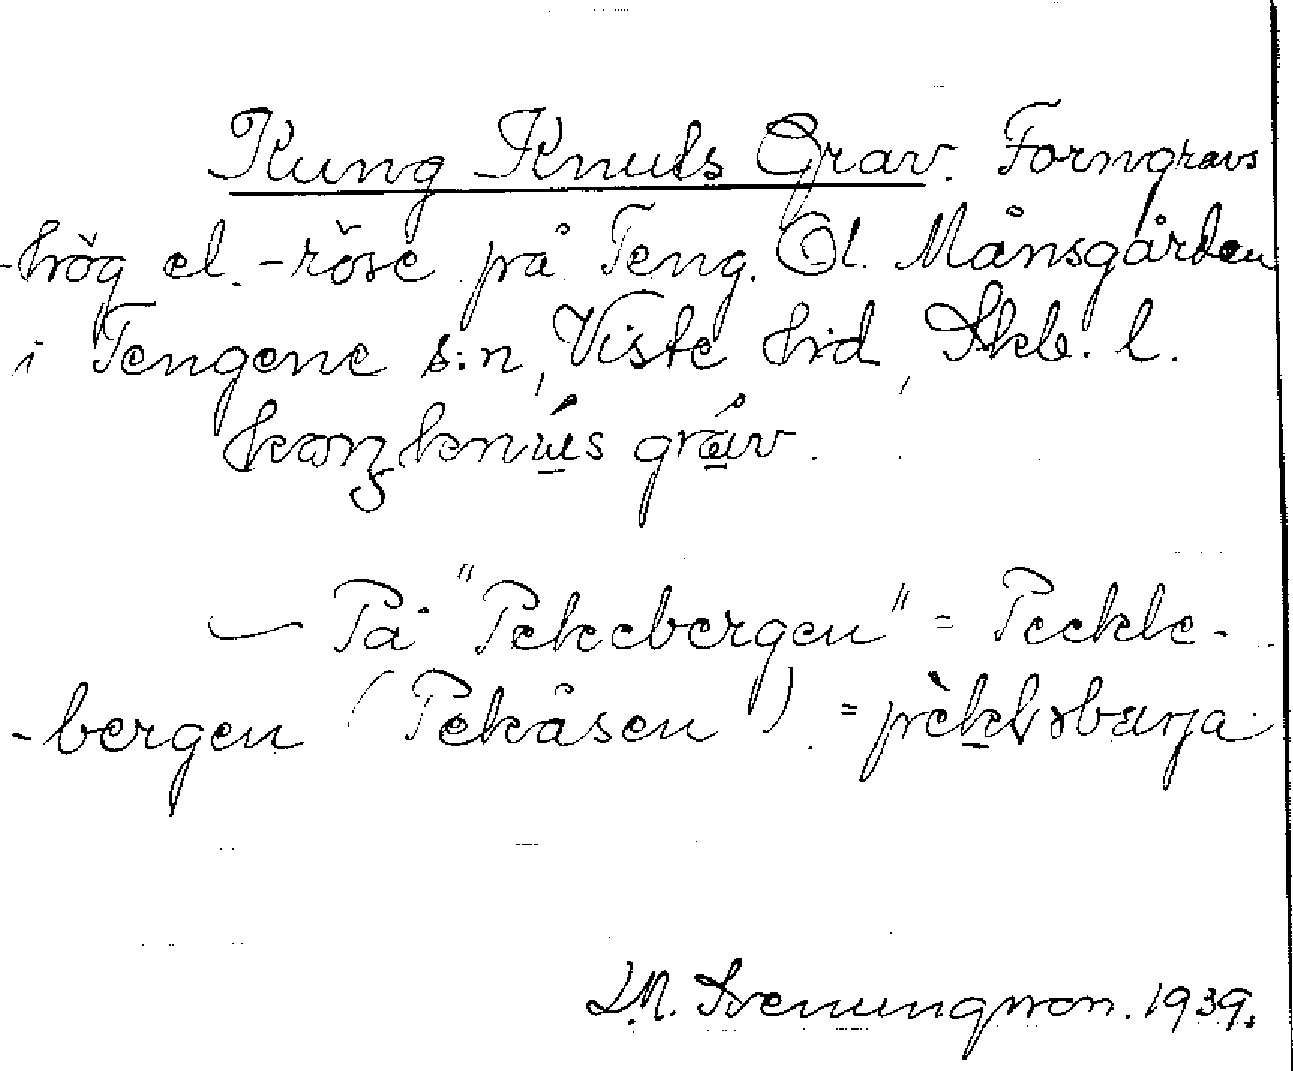 Kung Knuts Grav. Forngravs
-hög el. -röse på Teng. Ol. Månsgården
i Tengene s:n, Viste hd, Skb. l.
gráv.
— På "Pekebergen" = Peckle-
-bergen (Pekåsen). =
L.M. Svenungsson. 1939.